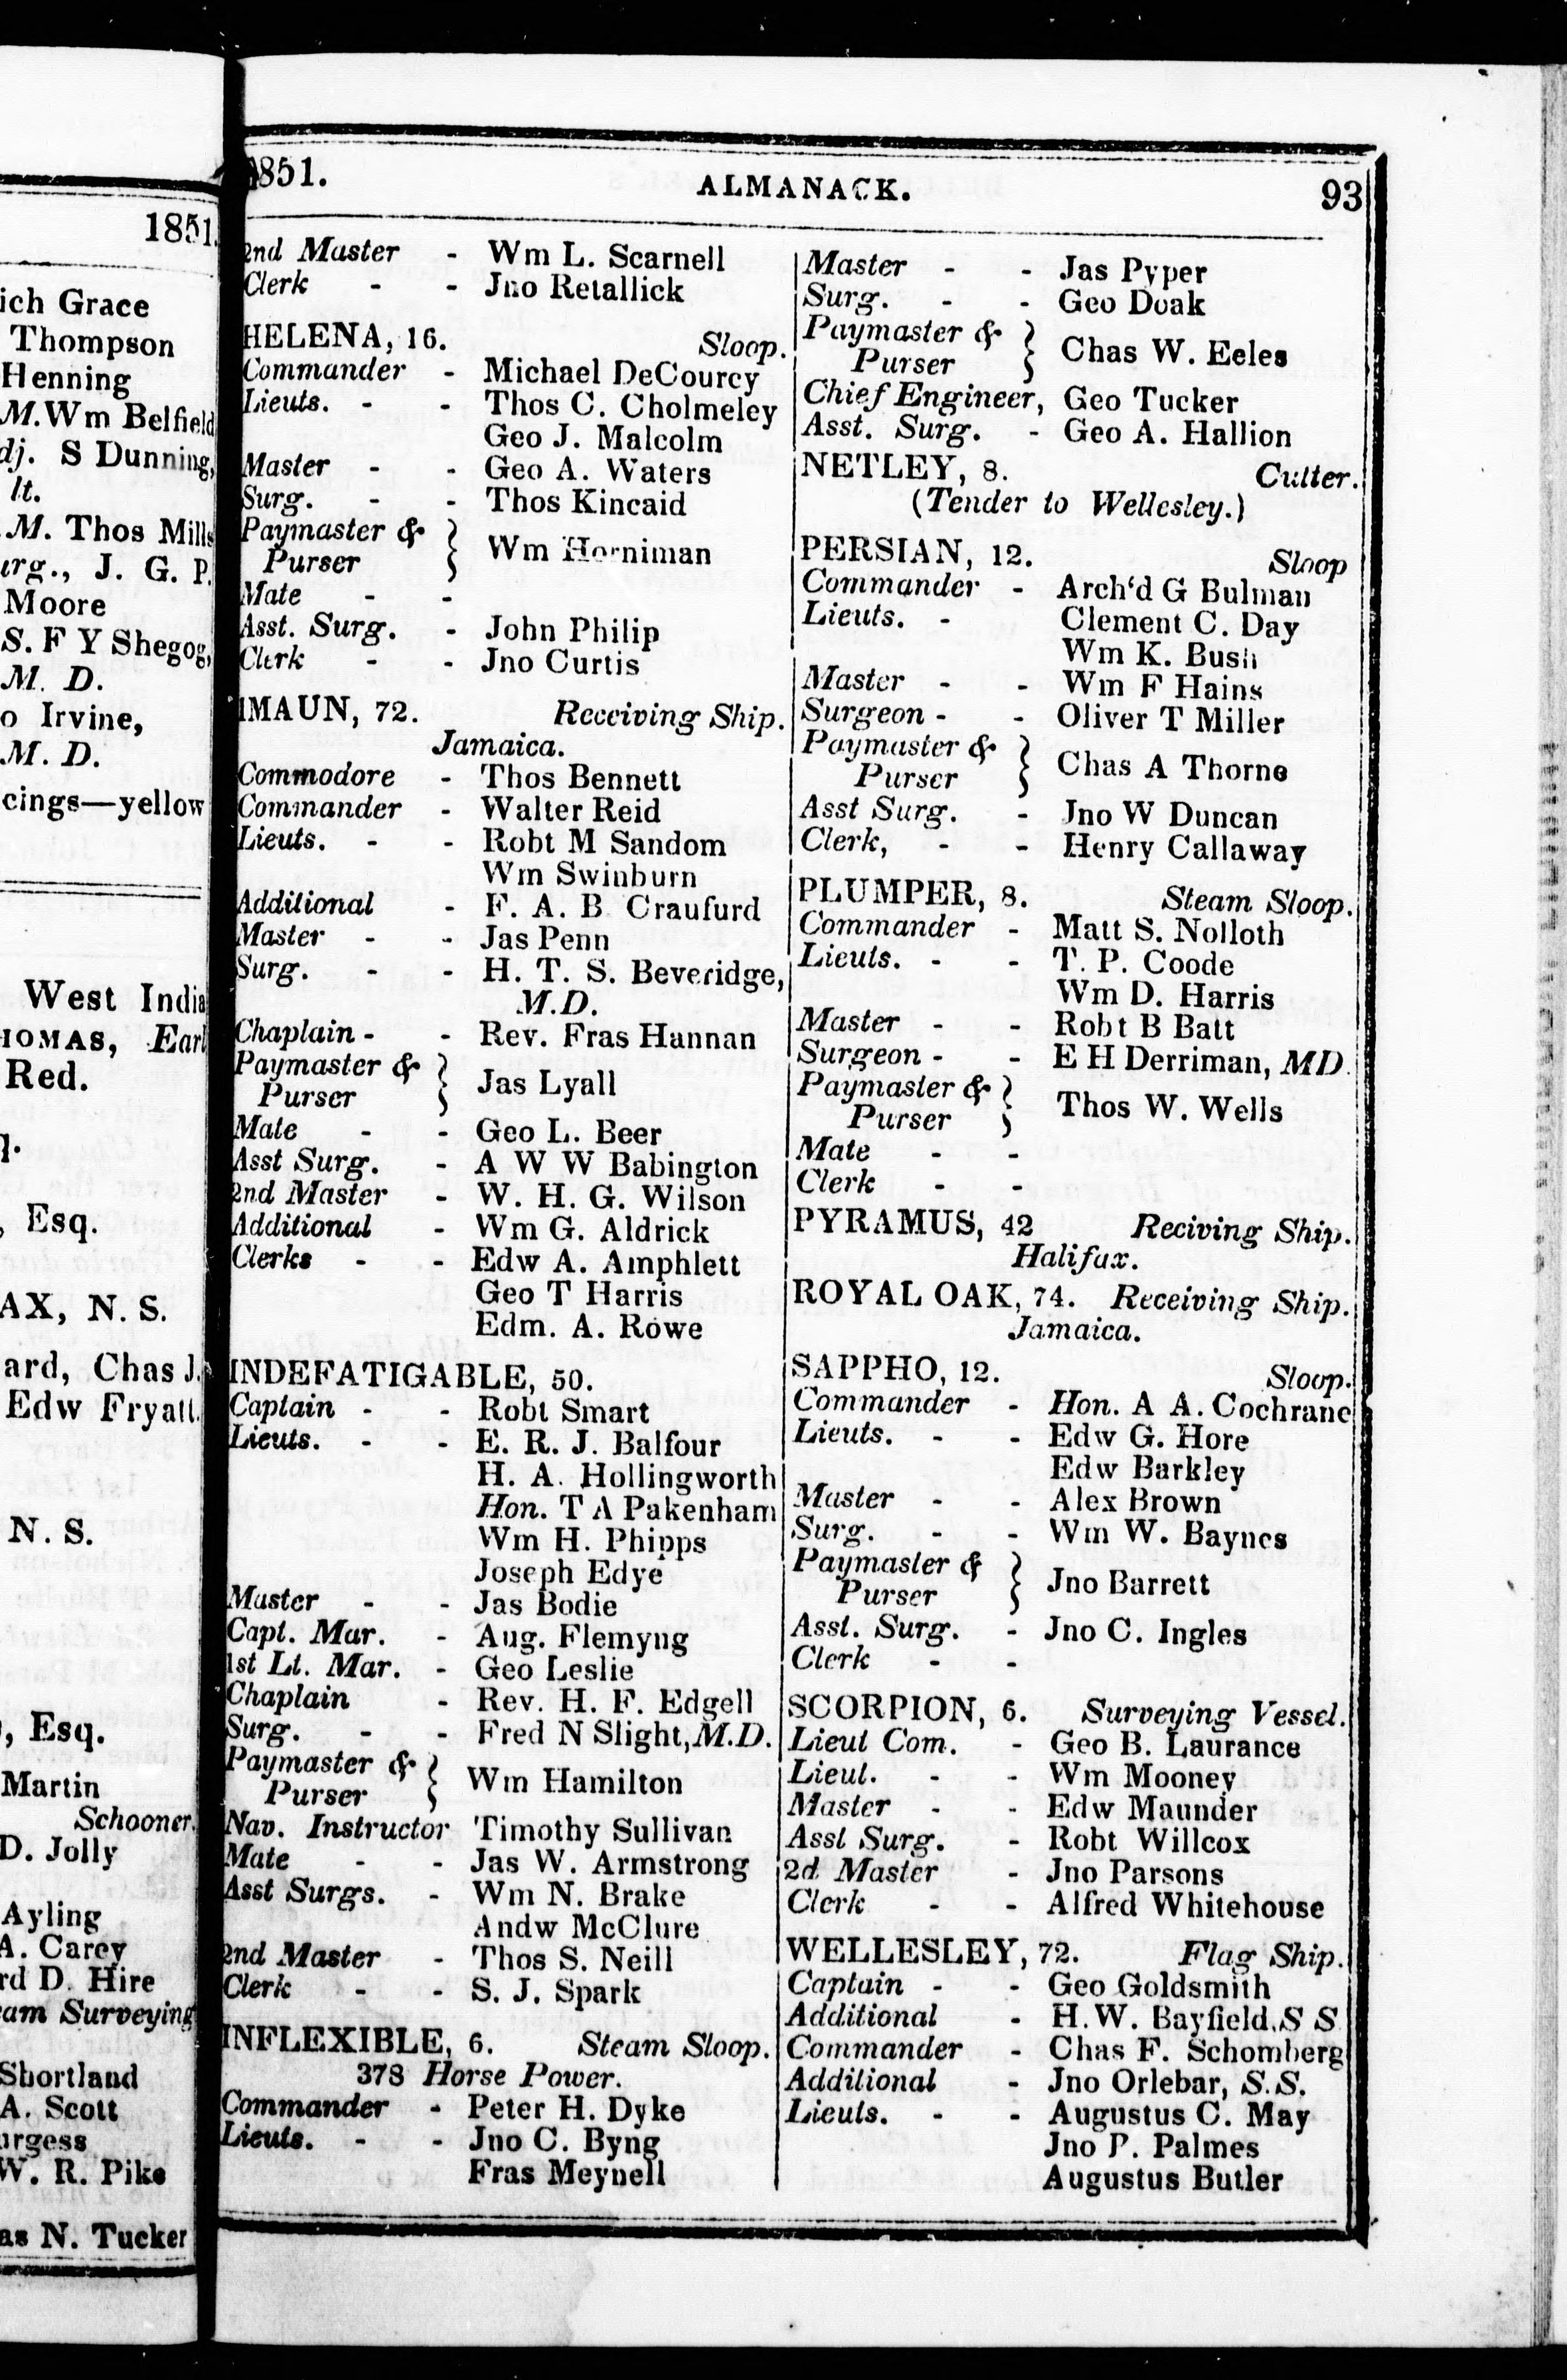 1851.
ich Grace
Thompson
Henning
M. Wm Belfield
dj. S Dunning,
lt.
M. Thos Mills
urg., J. G. P.
Moore
S. F Y Shegog,
M. D.
o Irvine,
M. D.
cings—yellow
West India
HOMAS, Earl
Red.
, Esq.
AX, N. S.
ard, Chas J.
Edw Fryatt.
N. S.
, Esq.
Martin
Schooner.
D. Jolly
Ayling
A. Carey
rd D. Hire
eam Surveying
Shortland
A. Scott
urgess
W. R. Pike
as N. Tucker
1851. ALMANACK. 93
2nd Master - Wm L. Scarnell
Clerk - - Jno Retallick
HELENA, 16. Sloop.
Commander - Michael DeCourcy
Lieuts. - - Thos C. Cholmeley
Geo J. Malcolm
Master - - Geo A. Waters
Surg. - - Thos Kincaid
Paymaster &
Purser } Wm Horniman
Mate - -
Asst. Surg. - John Philip
Clerk - - Jno Curtis
IMAUN, 72. Receiving Ship.
Jamaica.
Commodore - Thos Bennett
Commander - Walter Reid
Lieuts. - - Robt M Sandom
Wm Swinburn
Additional - F. A. B Craufurd
Master - - Jas Penn
Surg. - - H. T. S. Beveridge,
M.D.
Chaplain - - Rev. Fras Hannan
Paymaster &
Purser } Jas Lyall
Mate - - Geo L. Beer
Asst Surg. - A W W Babington
2nd Master - W. H. G. Wilson
Additional - Wm G. Aldrick
Clerks - - Edw A. Amphlett
Geo T Harris
Edm. A. Rowe
INDEFATIGABLE, 50.
Captain - - Robt Smart
Lieuts. - - E. R. J. Balfour
H. A. Hollingworth
Hon. T A Pakenham
Wm H. Phipps
Joseph Edye
Master - - Jas Bodie
Capt. Mar. - Aug. Flemyng
1st Lt. Mar. - Geo Leslie
Chaplain - Rev. H. F. Edgell
Surg. - - Fred N Slight, M.D.
Paymaster &
Purser } Wm Hamilton
Nav. Instructor Timothy Sullivan
Mate - - Jas W. Armstrong
Asst Surgs. - Wm N. Brake
Andw McClure
2nd Master - Thos S. Neill
Clerk - - S. J. Spark
INFLEXIBLE, 6. Steam Sloop.
378 Horse Power.
Commander - Peter H. Dyke
Lieuts. - - Jno C. Byng
Fras Meynell
Master - - Jas Pyper
Surg. - - Geo Doak
Paymaster &
Purser } Chas W. Eeles
Chief Engineer, Geo Tucker
Asst. Surg. - Geo A. Hallion
NETLEY, 8. Cutter.
(Tender to Wellesley.)
PERSIAN, 12. Sloop
Commander - Arch'd G Bulman
Lieuts. - Clement C. Day
Wm K. Bush
Master - - Wm F Hains
Surgeon - - Oliver T Miller
Paymaster &
Purser } Chas A Thorne
Asst Surg. - Jno W Duncan
Clerk, - - Henry Callaway
PLUMPER, 8. Steam Sloop.
Commander - Matt S. Nolloth
Lieuts. - - T. P. Coode
Wm D. Harris
Master - - Robt B Batt
Surgeon - - E H Derriman, MD.
Paymaster &
Purser } Thos W. Wells
Mate - -
Clerk - -
PYRAMUS, 42 Reciving Ship.
Halifax.
ROYAL OAK, 74. Receiving Ship.
Jamaica.
SAPPHO, 12. Sloop.
Commander - Hon. A A. Cochrane
Lieuts. - - Edw G. Hore
Edw Barkley
Master - - Alex Brown
Surg. - - Wm W. Baynes
Paymaster &
Purser } Jno Barrett
Asst. Surg. - Jno C. Ingles
Clerk - -
SCORPION, 6. Surveying Vessel.
Lieut Com. - Geo B. Laurance
Lieut. - - Wm Mooney
Master - - Edw Maunder
Asst Surg. - Robt Willcox
2d Master - Jno Parsons
Clerk - - Alfred Whitehouse
WELLESLEY, 72. Flag Ship.
Captain - - Geo Goldsmith
Additional - H. W. Bayfield, S S
Commander - Chas F. Schomberg
Additional - Jno Orlebar, S.S.
Lieuts. - - Augustus C. May
Jno P. Palmes
Augustus Butler